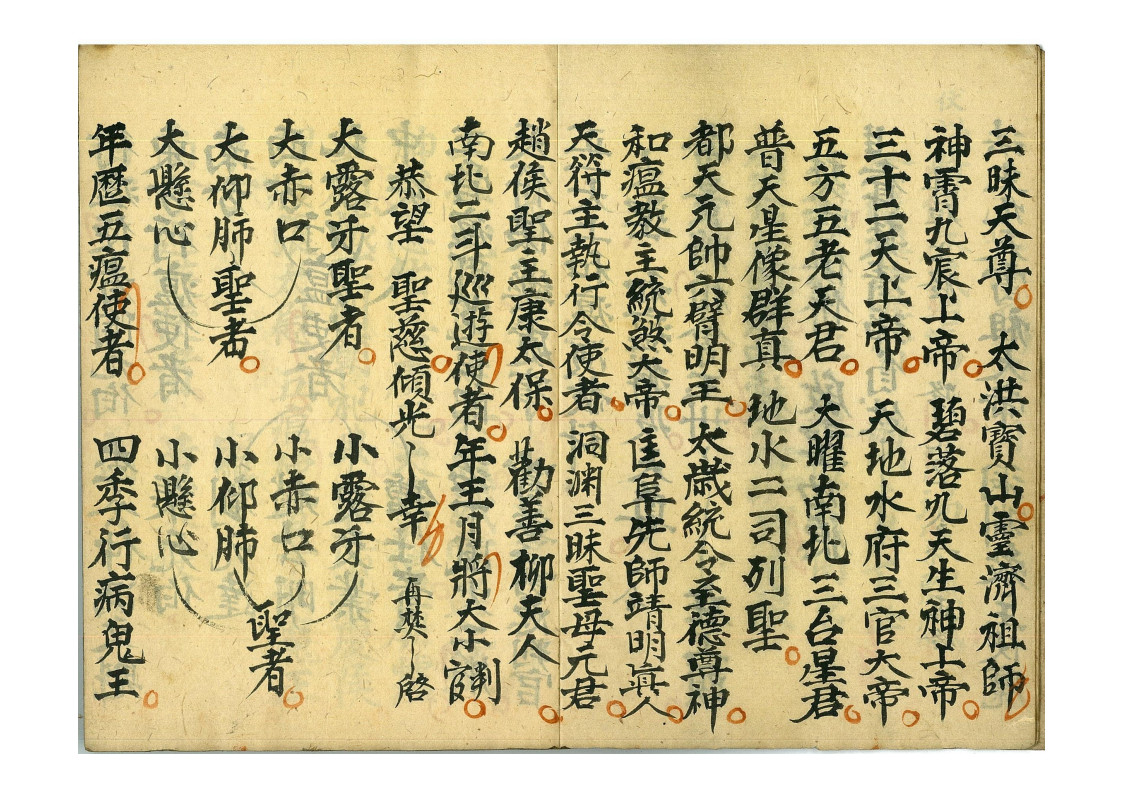 三昧天尊 太洪寶山靈濟祖師
神霄九宸上帝 碧落九天生神上帝
三十二天上帝 天地水府三官大帝
五方五老天君 大曜南北三台星君
普天星像群真 地水二司列聖
都天元帥六臂明王 太歲統令至德尊神
和瘟教主統煞大帝 匡阜先師靖明真人
天符主執行令使者 洞渊三昧聖母元君
趙侯聖主康太保 勸善柳夫人
南北二斗巡遊使者 年王月將大小官判
恭望 聖慈傾光〻幸 再焚〻啓
大露牙聖者 小露牙
大赤口 小赤口
大仰肺聖者 小仰肺 聖者
大懸心 小懸心
年曆五瘟使者 四季行病鬼王